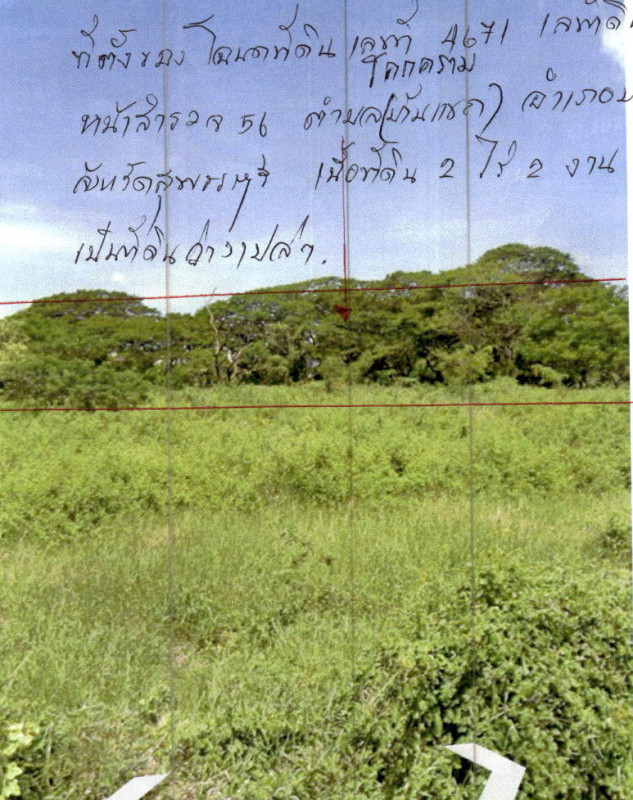 ที่ตั้งของ โฉนดที่ดิน เลขที่ 4671 เลขที่ดิน
โคกคราม
หน้าสำรวจ 56 ตำบล(บ้านแหลม) อำเภอ
จังหวัดสุพรรณบุรี เนื้อที่ดิน 2 ไร่ 2 งาน
เป็นที่ดินว่างเปล่า.